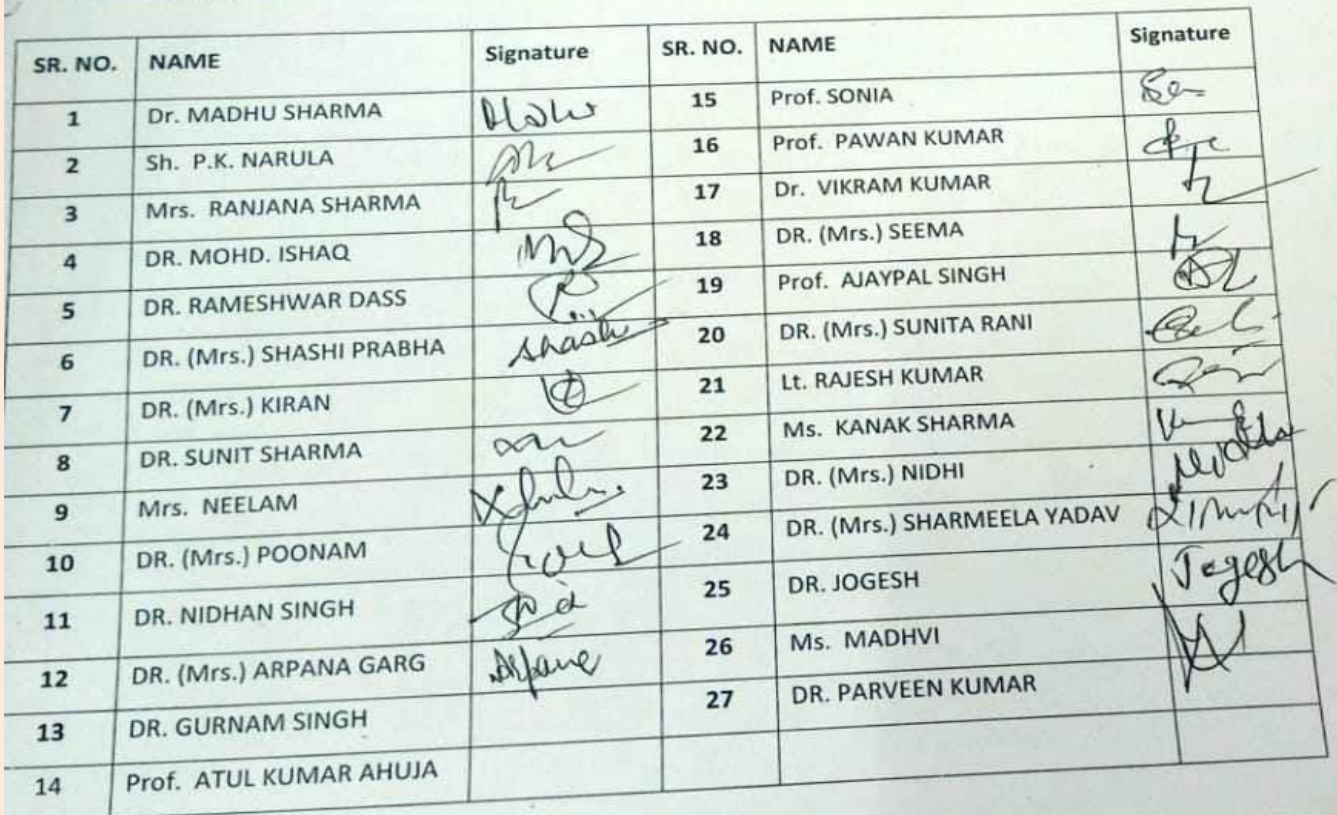 SR. NO. NAME Signature SR. NO. NAME Signature
1 Dr. MADHU SHARMA 15 Prof. SONIA
2 Sh. P.K. NARULA 16 Prof. PAWAN KUMAR
3 Mrs. RANJANA SHARMA 17 Dr. VIKRAM KUMAR
4 DR. MOHD. ISHAQ 18 DR. (Mrs.) SEEMA
5 DR. RAMESHWAR DASS 19 Prof. AJAYPAL SINGH
6 DR. (Mrs.) SHASHI PRABHA Shashi 20 DR. (Mrs.) SUNITA RANI
7 DR. (Mrs.) KIRAN 21 Lt. RAJESH KUMAR
8 DR. SUNIT SHARMA 22 Ms. KANAK SHARMA
9 Mrs. NEELAM 23 DR. (Mrs.) NIDHI
10 DR. (Mrs.) POONAM 24 DR. (Mrs.) SHARMEELA YADAV
11 DR. NIDHAN SINGH 25 DR. JOGESH Jogesh
12 DR. (Mrs.) ARPANA GARG Arpana 26 Ms. MADHVI
13 DR. GURNAM SINGH 27 DR. PARVEEN KUMAR
14 Prof. ATUL KUMAR AHUJA